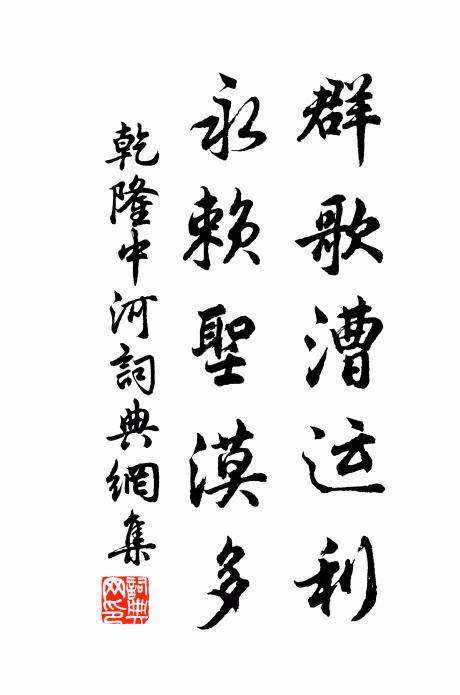 群歌漕运利
永赖聖漠多
乾隆中河詞典網集
詞典網印